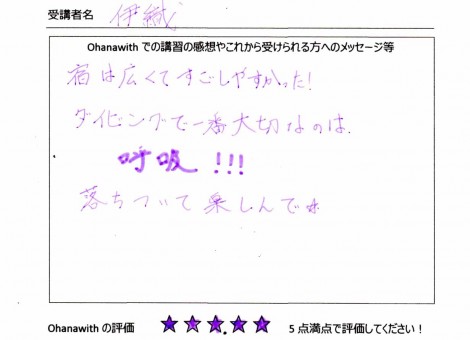 受講者名 伊織
Ohanawith での講習の感想やこれから受けられる方へのメッセージ等
宿は広くてすごしやすかった!
ダイビングで一番大切なのは、
呼吸!!!
落ちついて楽しんでね
Ohanawith の評価 ★★★★★ 5点満点で評価してください!